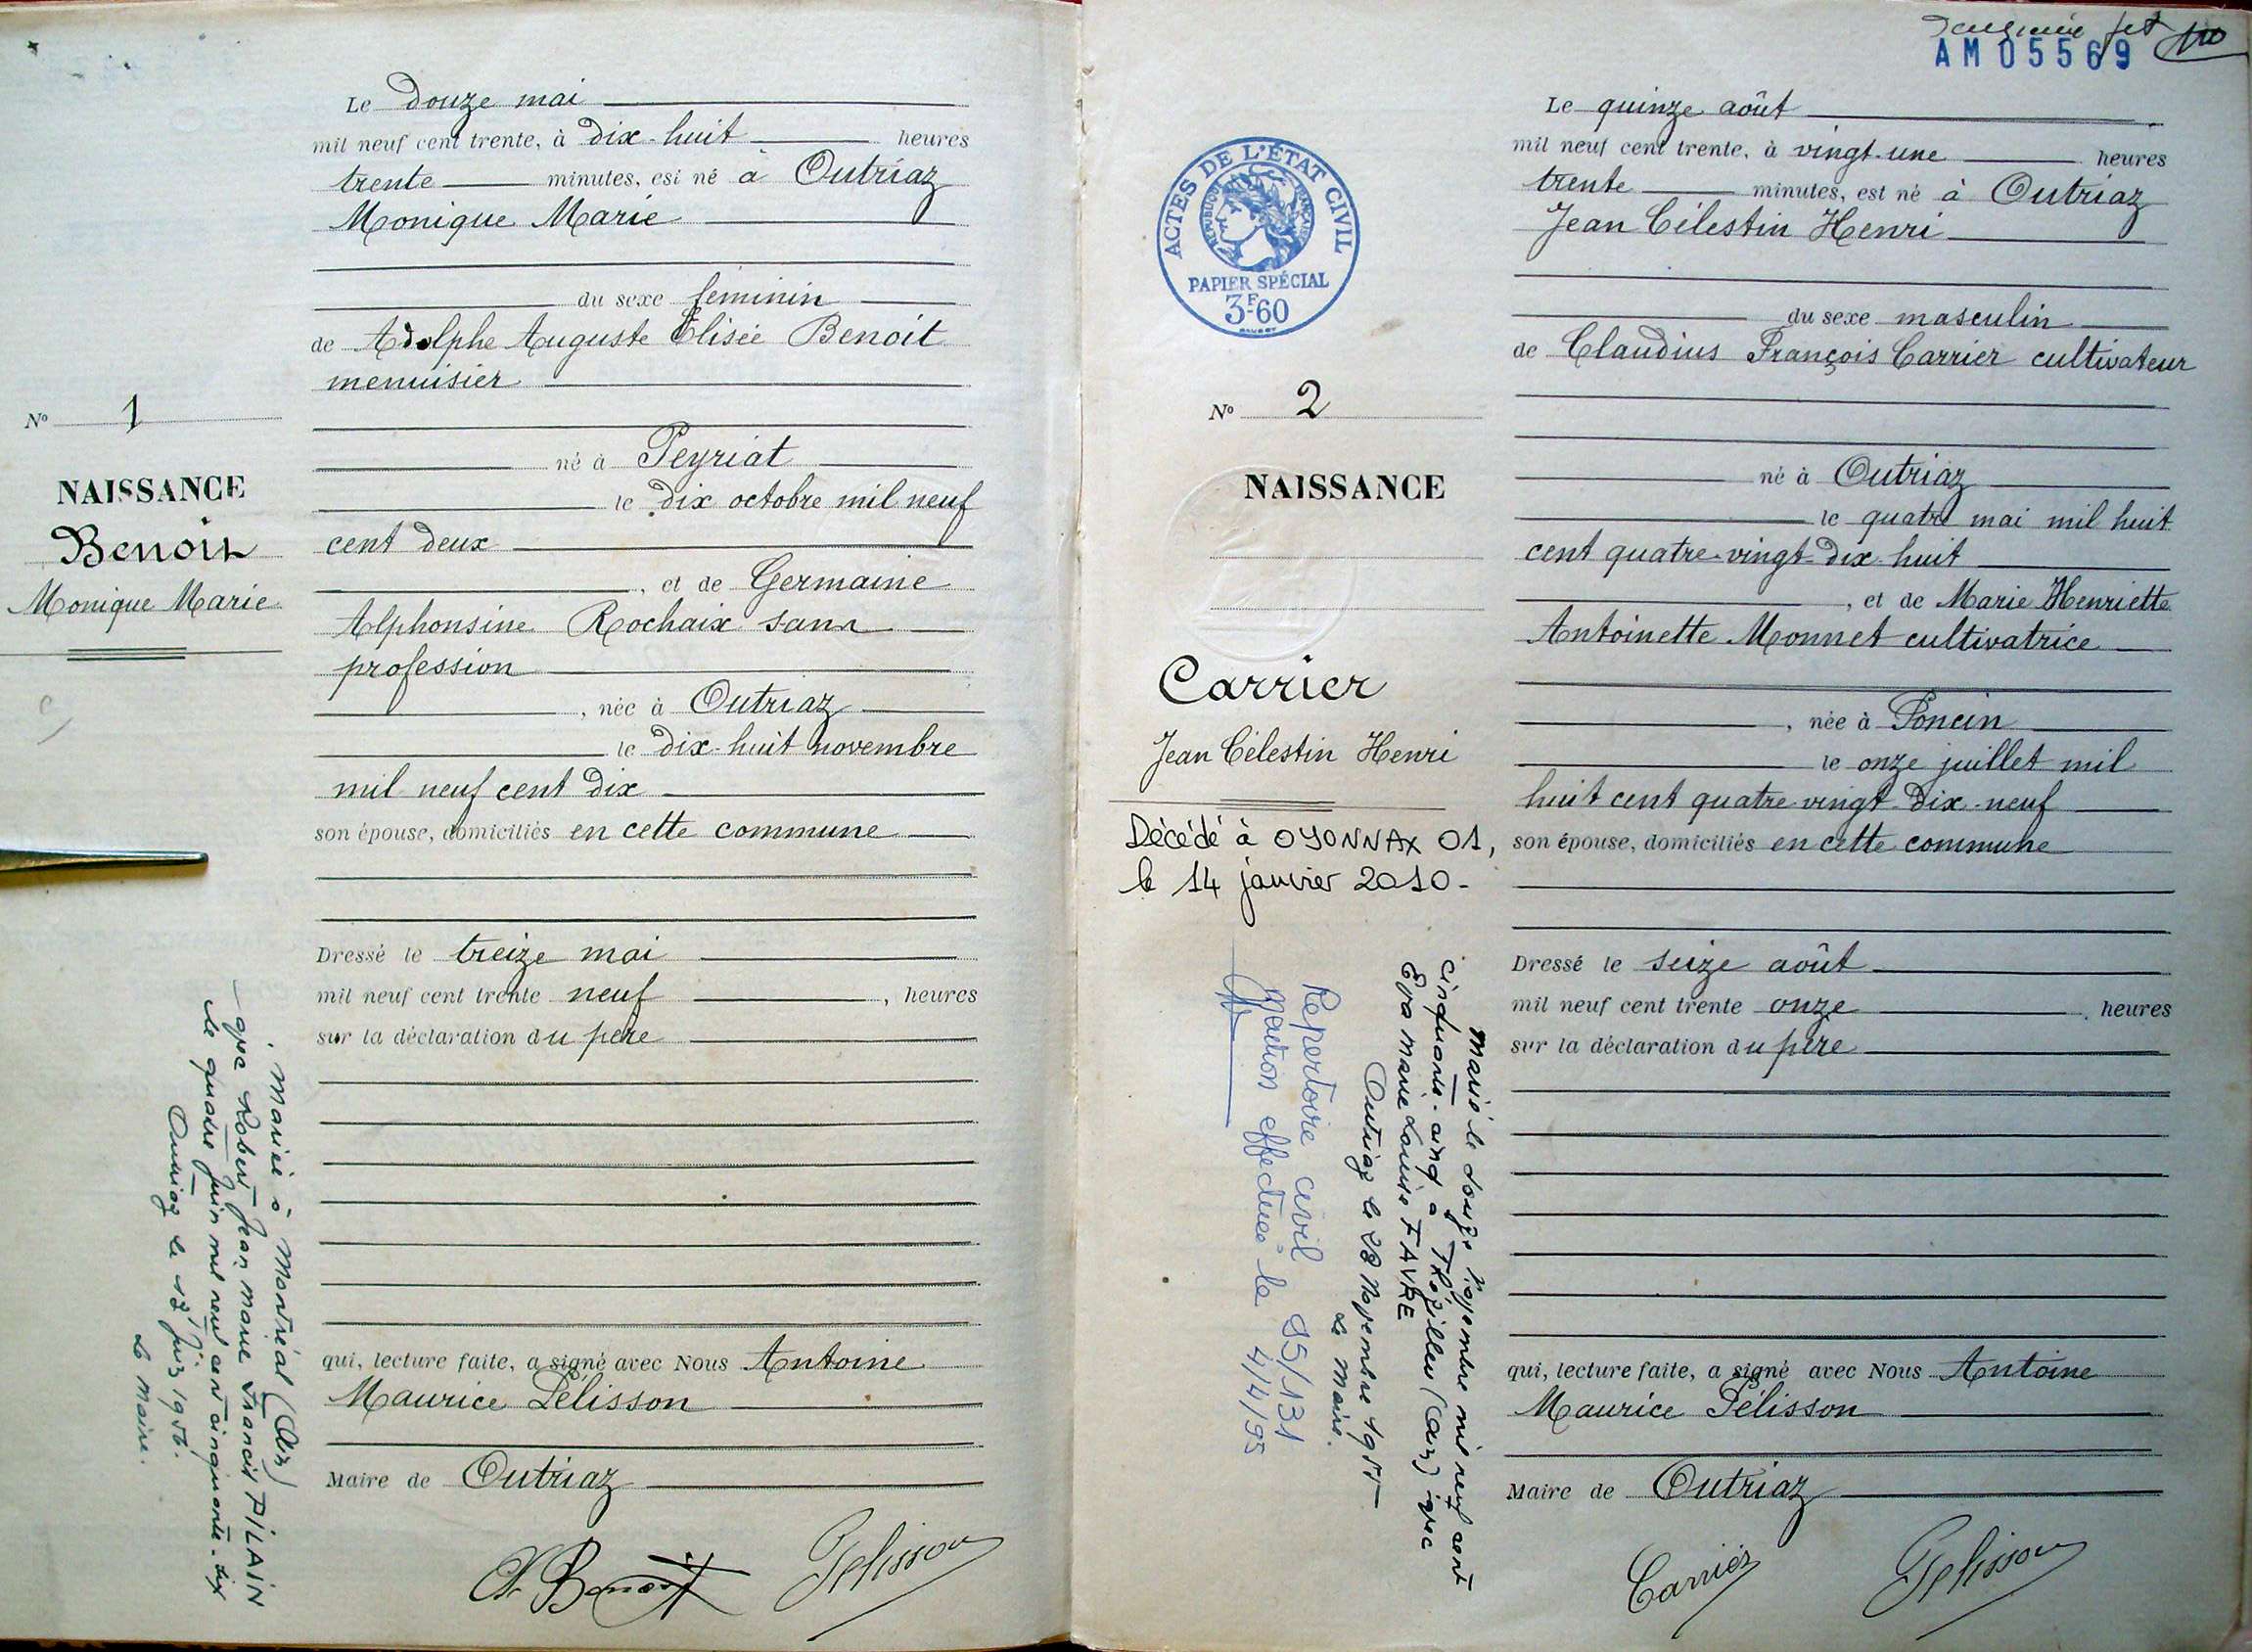 Le douze mai
mil neuf cent trente, à dix-huit heures
trente minutes, est né à Outriaz
Monique Marie
du sexe féminin
de Adolphe Auguste Elisée Benoit
menuisier
né à Peyriat
le dix octobre mil neuf
cent deux
, et de Germaine
Alphonsine Rochaix sans
profession
, née à Outriaz
le dix-huit novembre
mil neuf cent dix
son épouse, domiciliés en cette commune
Dressé le treize mai
mil neuf cent trente neuf , heures
sur la déclaration du père
qui, lecture faite, a signé avec Nous Antoine
Maurice Pélisson
Maire de Outriaz
A. Benoit Pelisson
No 1
NAISSANCE
Benoit
Monique Marie
Mariée à Montréal (Ain)
avec Robert Jean Marie Francis PILAIN
le quatre juin mil neuf cent cinquante-six
Outriaz le 12 juin 1956.
Le Maire.
AM05569
ACTES DE L'ÉTAT CIVIL
RÉPUBLIQUE FRANÇAISE
PAPIER SPÉCIAL
3F60
No 2
NAISSANCE
Carrier
Jean Célestin Henri
Décédé à OYONNAX 01,
le 14 janvier 2010-
Marié le douze Novembre mil neuf cent
cinquante-cinq à (Ain) avec
Eva Marie Louise FAVRE
Outriaz le 28 Novembre 1955
Le Maire.
Repertoire civil 95/131
Mention effectuée le 4/4/95
Le quinze août
mil neuf cent trente, à vingt-une heures
trente minutes, est né à Outriaz
Jean Célestin Henri
du sexe masculin
de Claudius François Carrier cultivateur
né à Outriaz
le quatre mai mil huit
cent quatre-vingt-dix-huit
, et de Marie Henriette
Antoinette Monnet cultivatrice
, née à Poncin
le onze juillet mil
huit cent quatre vingt-dix-neuf
son épouse, domiciliés en cette commune
Dressé le seize août
mil neuf cent trente onze , heures
sur la déclaration du père
qui, lecture faite, a signé avec Nous Antoine
Maurice Pélisson
Maire de Outriaz
Carrier Pelisson